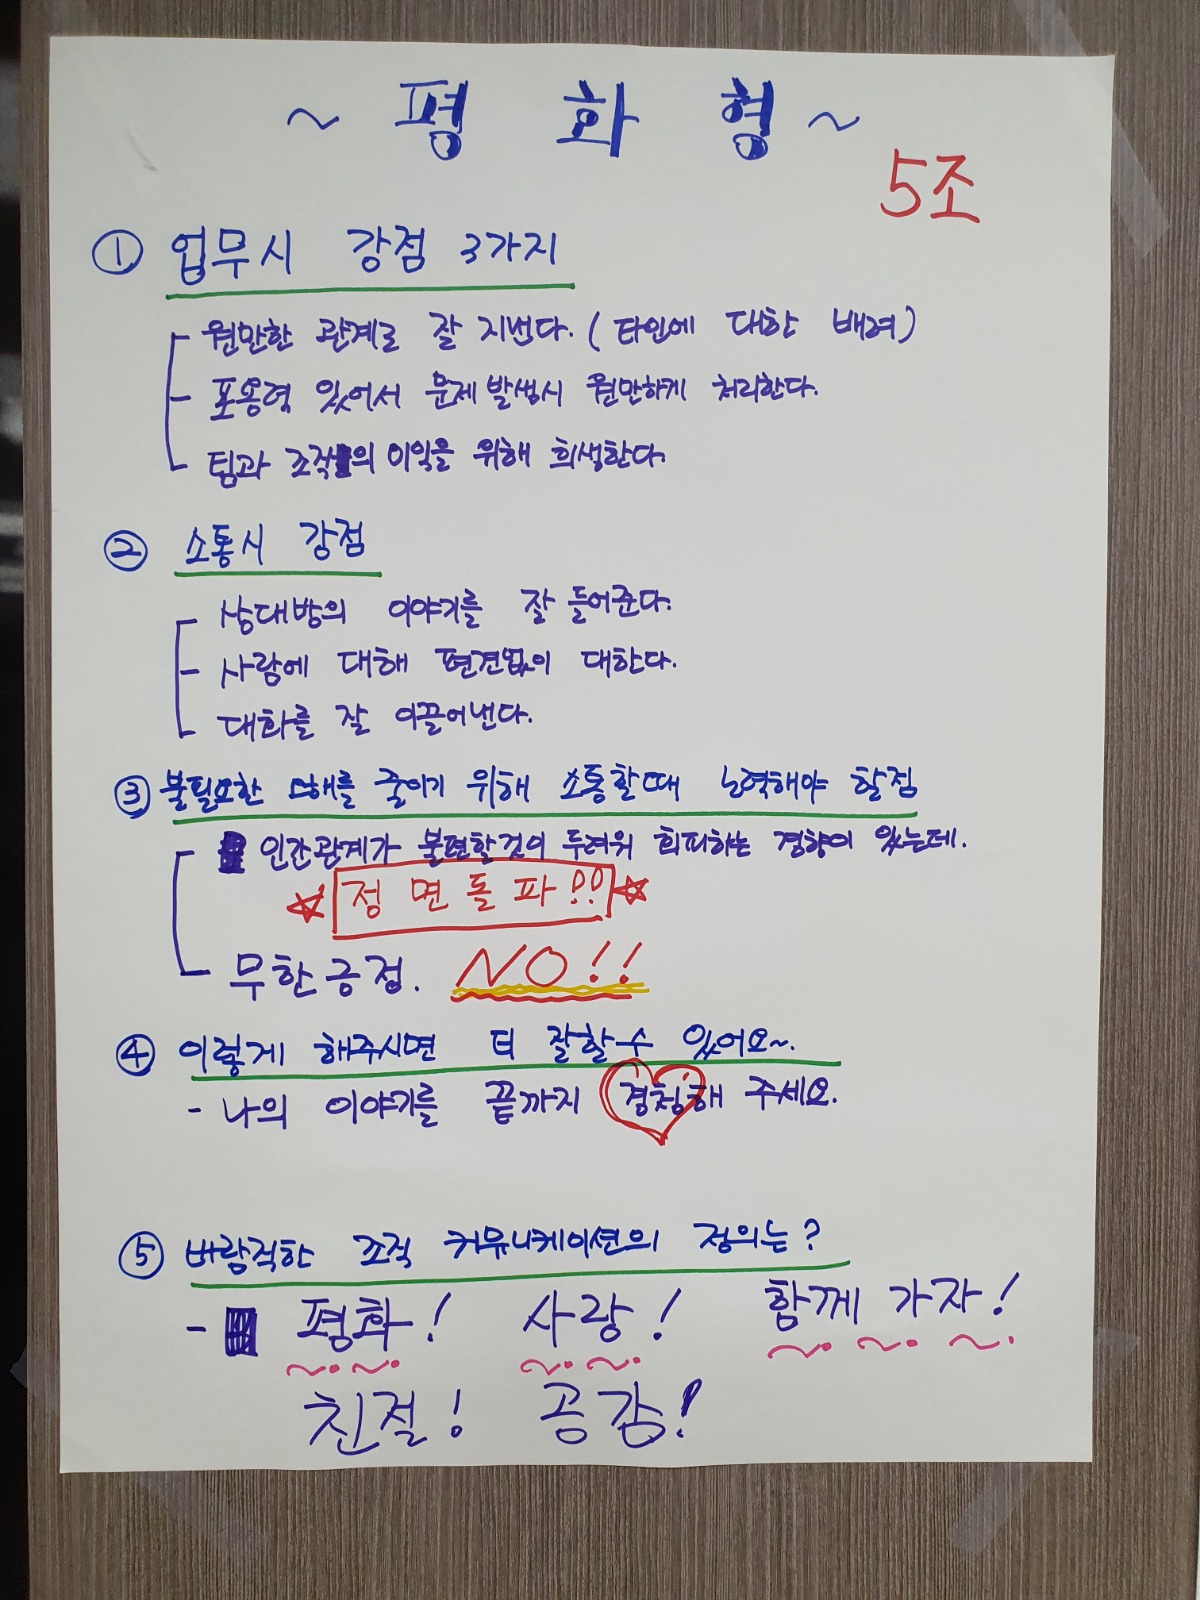 ~ 평 화 형 ~
5조
① 업무시 강점 3가지
원만한 관계로 잘 지낸다. (타인에 대한 배려)
- 포용력 있어서 문제발생시 원만하게 처리한다.
팀과 조직의 이익을 위해 희생한다.
② 소통시 강점
상대방의 이야기를 잘 들어준다.
- 사람에 대해 편견없이 대한다.
대화를 잘 이끌어낸다.
③ 불필요한 오해를 줄이기 위해 소통할때 노력해야 할점
인간관계가 불편할것이 두려워 회피하는 경향이 있는데.
☆ 정면돌파!! ☆
무한긍정. NO!!
④ 이렇게 해주시면 더 잘할수 있어요~.
- 나의 이야기를 끝까지 경청해 주세요.
⑤ 바람직한 조직 커뮤니케이션의 정의는?
- 평화! 사랑! 함께 가자!
친절! 공감!